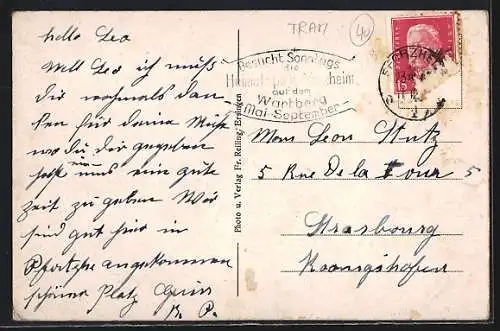 TRAM
40
hello Leo
Besucht Sonntags
die
auf dem
Wartberg
Mai-September
PFORZHEIM
15
Well Leo ich muß
dir nochmals dan
ken für deine Mühe
wo du dir gegeben
hast um
uns eine gute
Zeit zu geben Wir
sind gut hier in
Pfortzhe angekommen
schöner Platz Gruss
R. P.
Photo u. Verlag Fr. Reiling, Ersingen
Mons Leon Stutz
5 Rue De la Tour 5
Strasbourg
Koenigshofen